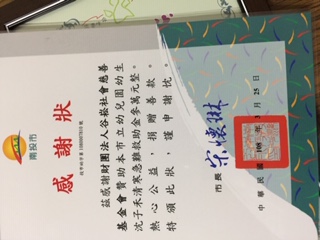 南投市
感謝狀
茲感謝財團法人谷崧社會慈善
基金會贊助本市立幼兒園幼生
沈子禾清寒急難救助金參萬元整。
熱心公益，捐贈善款。
特頒此狀，謹申謝忱。
市長 宋懷琳
中華民國108年3月25日